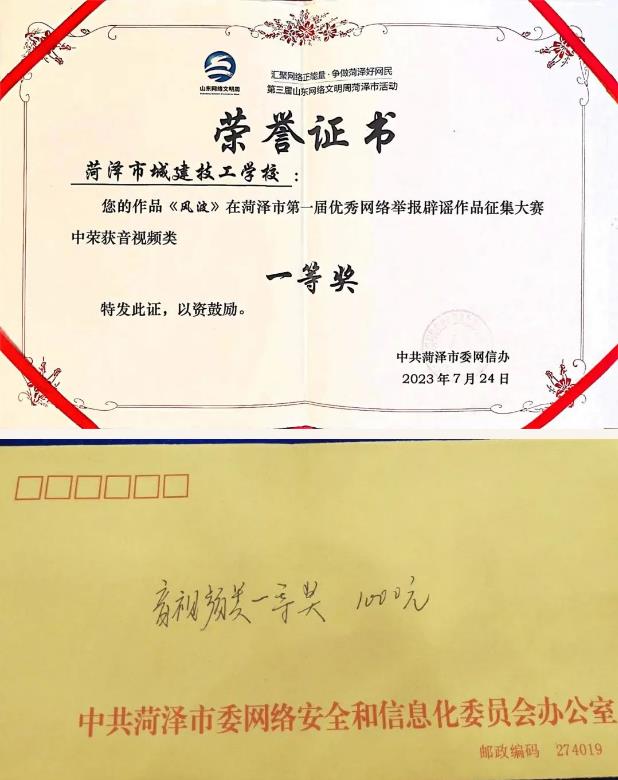 山东网络文明周
汇聚网络正能量·争做菏泽好网民
第三届山东网络文明周菏泽市活动
荣誉证书
菏泽市城建技工学校：
您的作品《风波》在菏泽市第一届优秀网络举报辟谣作品征集大赛
中荣获音视频类
一等奖
特发此证，以资鼓励。
中共菏泽市委网信办
2023年7月24日
音视频类一等奖 1000元
中共菏泽市委网络安全和信息化委员会办公室
邮政编码 274019